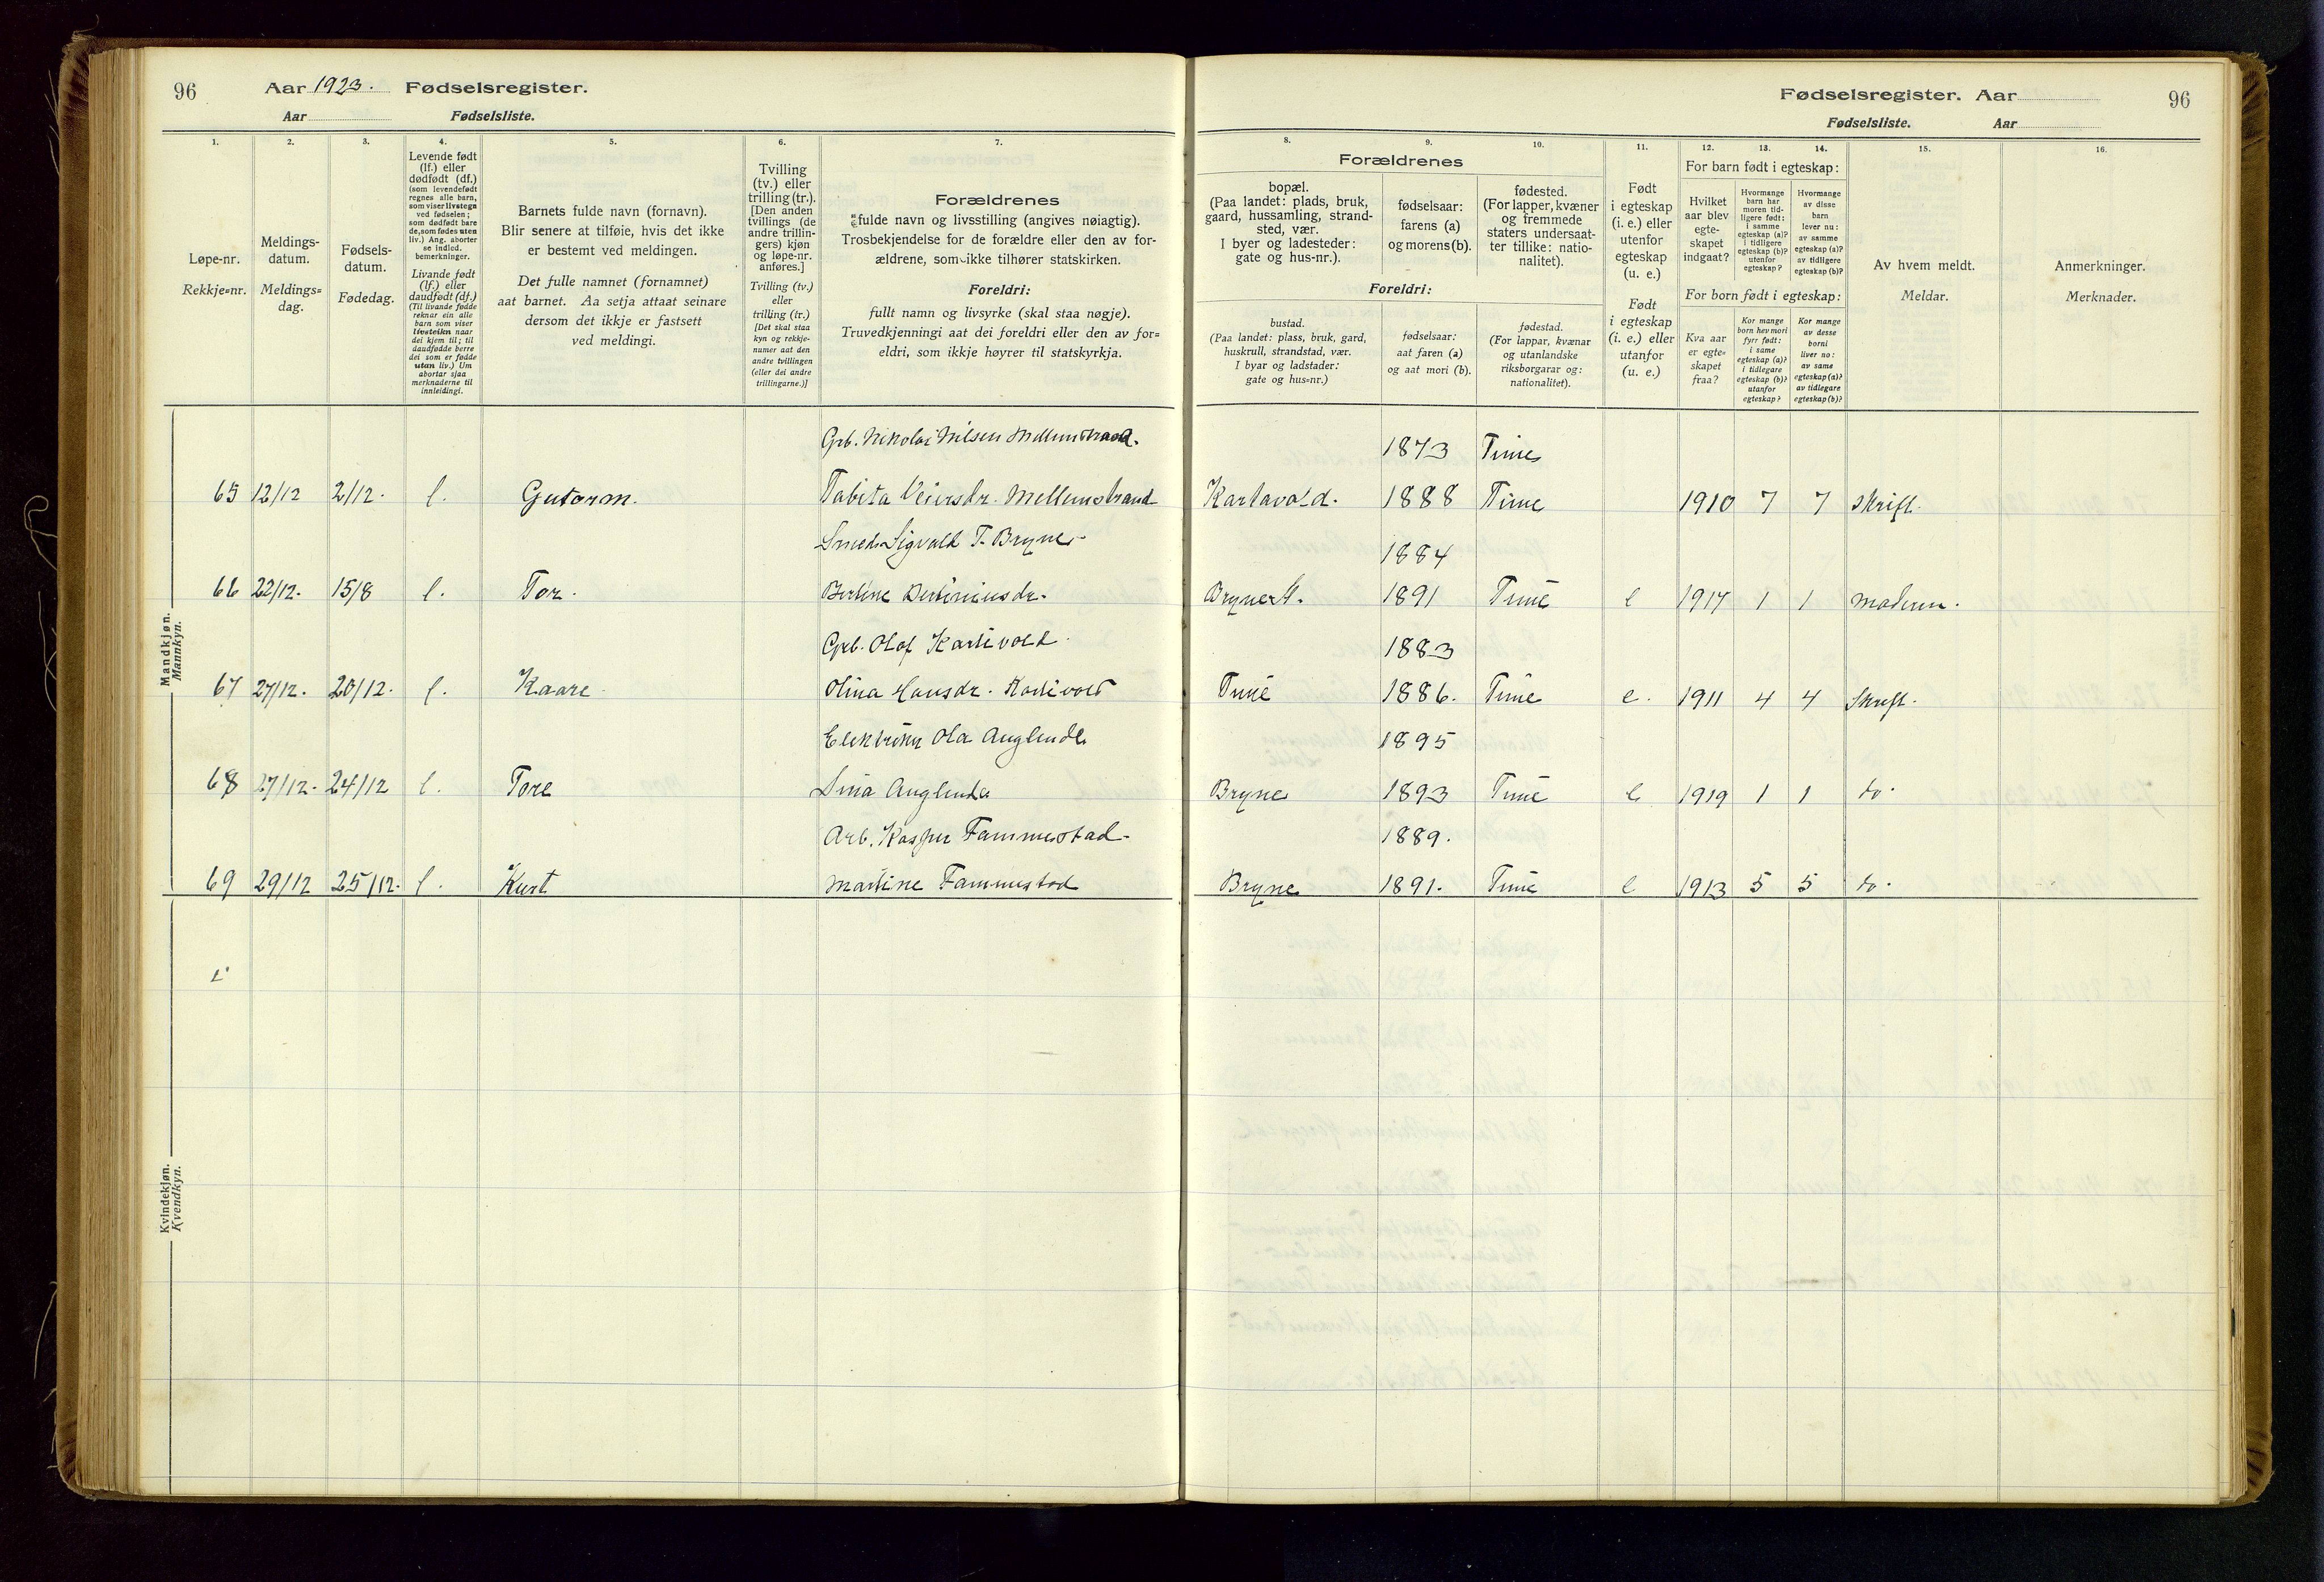 96
Aar 1923. Fødselsregister.
Aar Fødselsliste.
Fødselsregister. Aar
96
Fødselsliste. Aar
1.
Løpe-nr.
Rekkje=nr.
2.
Meldings-
datum.
Meldings=
dag.
3.
Fødsels-
datum.
Fødedag.
4.
Levende født
(lf.) eller
dødfødt (df.)
(som levendefødt
regnes alle barn,
som viser livstegn
ved fødselen;
som dødfødt bare
de, som fødes uten
liv.) Ang. aborter
se indled.
bemerkninger.
Livande født
(lf.) eller
daudfødt (df.)
(Til livande fødde
reknar ein alle
barn som viser
livsteikn naar
dei kjem til; til
daudfødde berre
dei som er fødde
utan liv.) Um
abortar sjaa
merknaderne til
innleidingi.
5.
Barnets fulde navn (fornavn).
Blir senere at tilføie, hvis det ikke
er bestemt ved meldingen.
Det fulle namnet (fornamnet)
aat barnet. Aa setja attaat seinare
dersom det ikkje er fastsett
ved meldingi.
6.
Tvilling
(tv.) eller
trilling (tr.).
[Den anden
tvillings (de
andre trillin-
gers) kjøn
og løpe-nr.
anføres.]
Tvilling (tv.)
eller
trilling (tr.)
[Det skal staa
kyn og rekkje-
numer aat den
andre tvillingen
(eller dei andre
trillingarne.)]
7.
Forældrenes
fulde navn og livsstilling (angives nøiagtig).
Trosbekjendelse for de forældre eller den av for-
ældrene, som ikke tilhører statskirken.
Foreldri:
fullt namn og livsyrke (skal staa nøgje).
Truvedkjenningi aat dei foreldri eller den av for=
eldri, som ikkje høyrer til statskyrkja.
8.
Forældrenes
bopæl.
(Paa landet: plads, bruk,
gaard, hussamling, strand-
sted, vær.
I byer og ladesteder:
gate og hus-nr.).
Foreldri:
bustad.
(Paa landet: plass, bruk, gard,
huskrull, strandstad, vær.
I byar og ladstader:
gate og hus=nr.)
9.
fødselsaar:
farens (a)
og morens (b).
fødselsaar:
aat faren (a)
og aat mori (b).
10.
fødested.
(For lapper, kvæner
og fremmede
staters undersaat-
ter tillike: natio-
nalitet).
fødestad.
(For lappar, kvænar
og utanlandske
riksborgarar og:
nationalitet).
11.
Født
i egteskap
(i. e.) eller
utenfor
egteskap
(u. e.)
Født
i egteskap
(i. e.) eller
utanfor
(u. e.)
12. 13. 14.
For barn født i egteskap:
Hvilket
aar blev
egte-
skapet
indgaat?
Hvormange
barn har
moren tid-
ligere født:
i samme
egteskap (a)?
i tidligere
egteskap (b)?
utenfor
egteskap?
Hvormange
av disse
barn
lever nu:
av samme
egteskap (a)?
av tidligere
egteskap (b)?
For born født i egteskap:
Kva aar
er egte=
skapet
fraa?
Kor mange
born hev mori
fyrr født:
i same
egteskap (a)?
i tidlegare
egteskap (b)?
utanfor
egteskap?
Kor mange
av desse
borni
liver no:
av same
egteskap (a)?
av tidlegare
egteskap (b)?
15.
Av hvem meldt.
Meldar.
16.
Anmerkninger.
Merknader.
Mandkjøn.
Mannkyn.
Grb. Nikolai Nilsen Mellemstrand. 1873 Time
65 12/12 2/12. l. Gutorm. Tabita Veiersdr. Mellemstrand Kartavold. 1888 Time 1910 7 7 Skrift.
Smed Sigvald T. Bryne 1884
66 22/12. 15/8 l. Tor. Bertine Bertiniusdr. Bryne St. 1891 Time e 1917 1 1 moderen.
Grb. Olaf Kartivold 1883
67 27/12. 20/12. l. Kaare Olina Hansdr. Kartivold Time 1886. Time e. 1911 4 4 Skrift.
Elektriker Ola Auglend 1895
68 27/12. 24/12 l. Tore Sina Auglend Bryne 1893 Time e 1919 1 1 do.
Arb. Kasper Fammestad. 1889.
69 29/12 25/12. l. Kurt Martine Fammestad Bryne 1891. Time e 1913 5 5 do.
Kvindekjøn.
Kvendkyn.